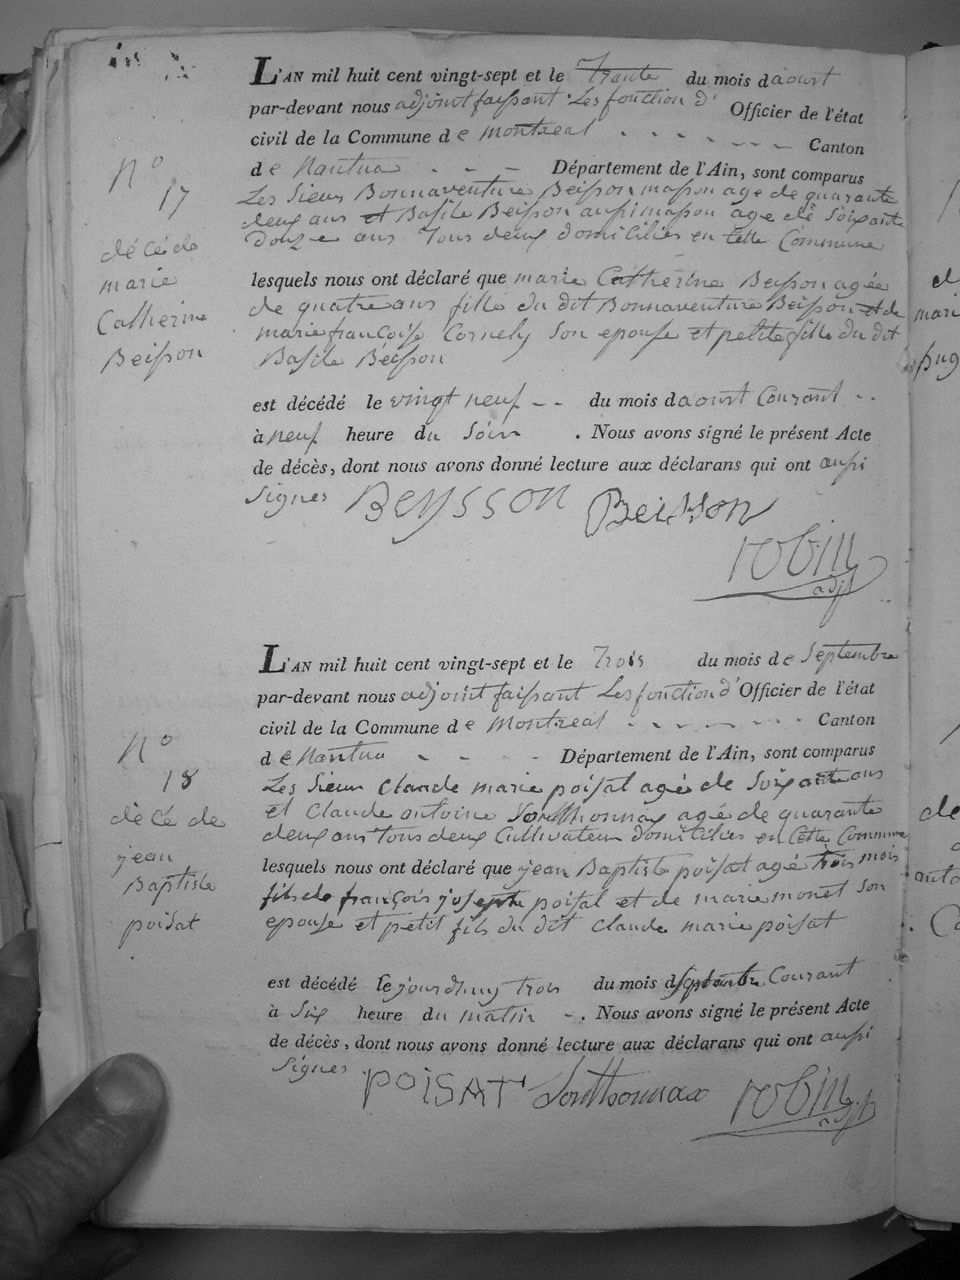 L'AN mil huit cent vingt-sept et le Trante du mois d aoust
par-devant nous adjoint faissant Les fonction d' Officier de l'état
civil de la Commune de Montreal Canton
N° 17
de Nantua Département de l'Ain, sont comparus
Les Sieur Bonnaventure Beisson masson age de quarante
deux ans et Basile Beisson aussi masson age de Soixante
Douze ans Tous deux domiciliés en cette Commune
décé de
marie
Catherine
Beisson
lesquels nous ont déclaré que marie Catherine Beisson agée
de quatre ans fille du dit Bonnaventure Beisson et de
marie françoise Cornely Son epouse et petite fille du dit
Basile Beisson
est décédé le vingt neuf du mois d aoust Courant
à neuf heure du Soir . Nous avons signé le présent Acte
de décès, dont nous avons donné lecture aux déclarans qui ont aussi
Signés BEYSSON Beisson
robin
adjt
L'AN mil huit cent vingt-sept et le Trois du mois de Septembre
par-devant nous adjoint faissant Les fonction d' Officier de l'état
civil de la Commune de Montreal Canton
N° 18
de Nantua Département de l'Ain, sont comparus
Les Sieur Claude marie poisat agé de Soixante ans
et Claude antoine Sonthonnax agé de quarante
deux ans Tous deux Cultivateur domiciliés en Cette Commune
décé de
jean
Baptiste
poisat
lesquels nous ont déclaré que jean Baptiste poisat agé trois mois
fils de françois josepte poisat et de marie monet son
epouse et petit fils du dit Claude marie poisat
est décédé le jourdhuy trois du mois d Septembre Courant
à Six heure du matin . Nous avons signé le présent Acte
de décès, dont nous avons donné lecture aux déclarans qui ont aussi
Signés POISAT Sonthonnax robin
adjt